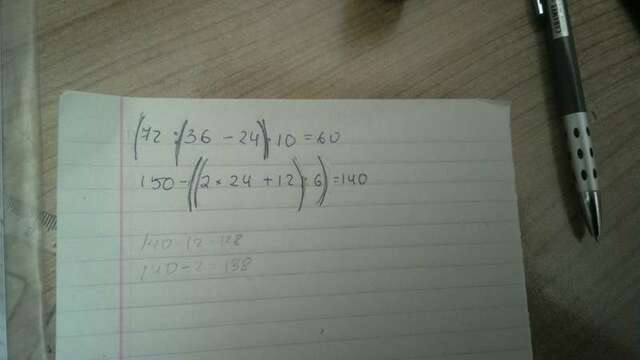 (72 : (36 - 24) · 10 = 60
150 - ((2 × 24 + 12) : 6) = 140
140 - 12 = 128
140 - 2 = 138